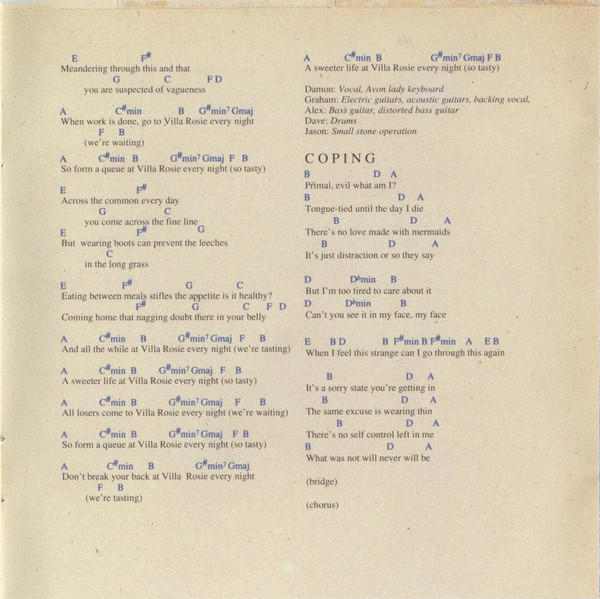 E F#
Meandering through this and that
G C F D
you are suspected of vagueness
A C#min B G#min7 Gmaj
When work is done, go to Villa Rosie every night
F B
(we're waiting)
A C#min B G#min7 Gmaj F B
So form a queue at Villa Rosie every night (so tasty)
E F#
Across the common every day
G C
you come across the fine line
E F# G
But wearing boots can prevent the leeches
C
in the long grass
E F# G C
Eating between meals stifles the appetite is it healthy?
F# G C F D
Coming home that nagging doubt there in your belly
A C#min B G#min7 Gmaj F B
And all the while at Villa Rosie every night (we're tasting)
A C#min B G#min7 Gmaj F B
A sweeter life at Villa Rosie every night (so tasty)
A C#min B G#min7 Gmaj F B
All losers come to Villa Rosie every night (we're waiting)
A C#min B G#min7 Gmaj F B
So form a queue at Villa Rosie every night (so tasty)
A C#min B G#min7 Gmaj
Don't break your back at Villa Rosie every night
F B
(we're tasting)
A C#min B G#min7 Gmaj F B
A sweeter life at Villa Rosie every night (so tasty)
Damon: Vocal, Avon lady keyboard
Graham: Electric guitars, acoustic guitars, backing vocal,
Alex: Bass guitar, distorted bass guitar
Dave: Drums
Jason: Small stone operation
COPING
B D A
Primal, evil what am I?
B D A
Tongue-tied until the day I die
B D A
There's no love made with mermaids
B D A
It's just distraction or so they say
D Dbmin B
But I'm too tired to care about it
D Dbmin B
Can't you see it in my face, my face
E B D B F#min B F#min A E B
When I feel this strange can I go through this again
B D A
It's a sorry state you're getting in
B D A
The same excuse is wearing thin
B D A
There's no self control left in me
B D A
What was not will never will be
(bridge)
(chorus)